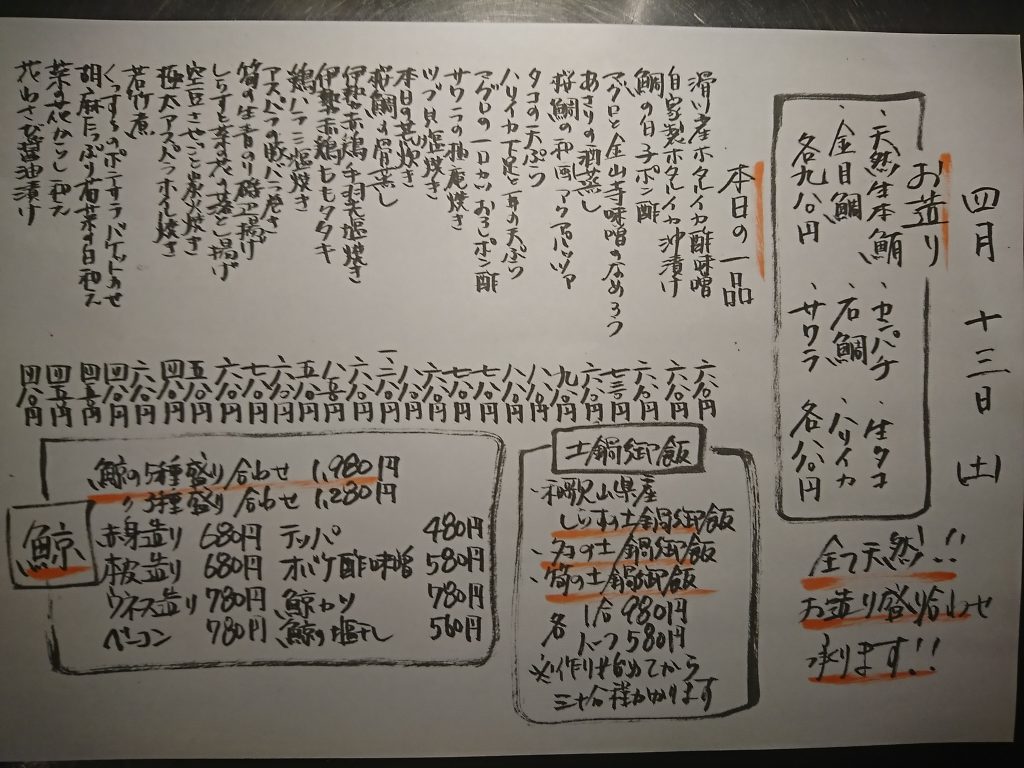 四月 十三日 (土)
お造り
・天然生本鮪 ・カンパチ ・生タコ
・金目鯛 ・石鯛 ・ハリイカ
各九八〇円 ・サワラ 各八八〇円
全て天然!!
お造り盛り合わせ
承ります!!
本日の一品
滑川産ホタルイカ酢味噌 六八〇円
自家製ホタルイカ沖漬け 六八〇円
鯛の白子ポン酢 六八〇円
マグロと金山寺味噌のなめろう 七三〇円
あさりの酒蒸し 六八〇円
桜鯛の和風アクアパッツァ 九八〇円
タコの天ぷら
ハリイカ下足と の天ぷら
マグロの一口カツおろしポン酢 七八〇円
サワラの柚庵焼き 七八〇円
ツブ貝塩焼き 六八〇円
本日の煮炊き
桜鯛の骨蒸し
伊勢赤鶏手羽先塩焼き
伊勢赤鶏ももタタキ
鶏ハラミ塩焼き 五八〇円
アスパラの豚バラ巻き 六八〇円
筍の生青のり磯辺揚げ 七八〇円
しらすと菜の花 揚げ 六八〇円
空豆さやごと炭火焼き 五八〇円
極太アスパラホイル焼き 四八〇円
若竹煮 六八〇円
くんすもののポテサラバケットのせ 四八〇円
胡麻たっぷり 白和え 四五〇円
菜の花からし和え 四五〇円
花わさび醤油漬け 四八〇円
土鍋御飯
・和歌山県産
しらすの土鍋御飯
・ の土鍋御飯
・筍の土鍋御飯
各 1合 980円
ハーフ 580円
※作り始めてから
三十分程かかります
鯨
鯨の5種盛り合わせ 1,980円
〃3種盛り合わせ 1,280円
赤身造り 680円 テッパ 480円
本皮造り 680円 オバケ酢味噌 580円
ウネス造り 780円 鯨カツ 780円
ベーコン 780円 鯨の塩干し 560円